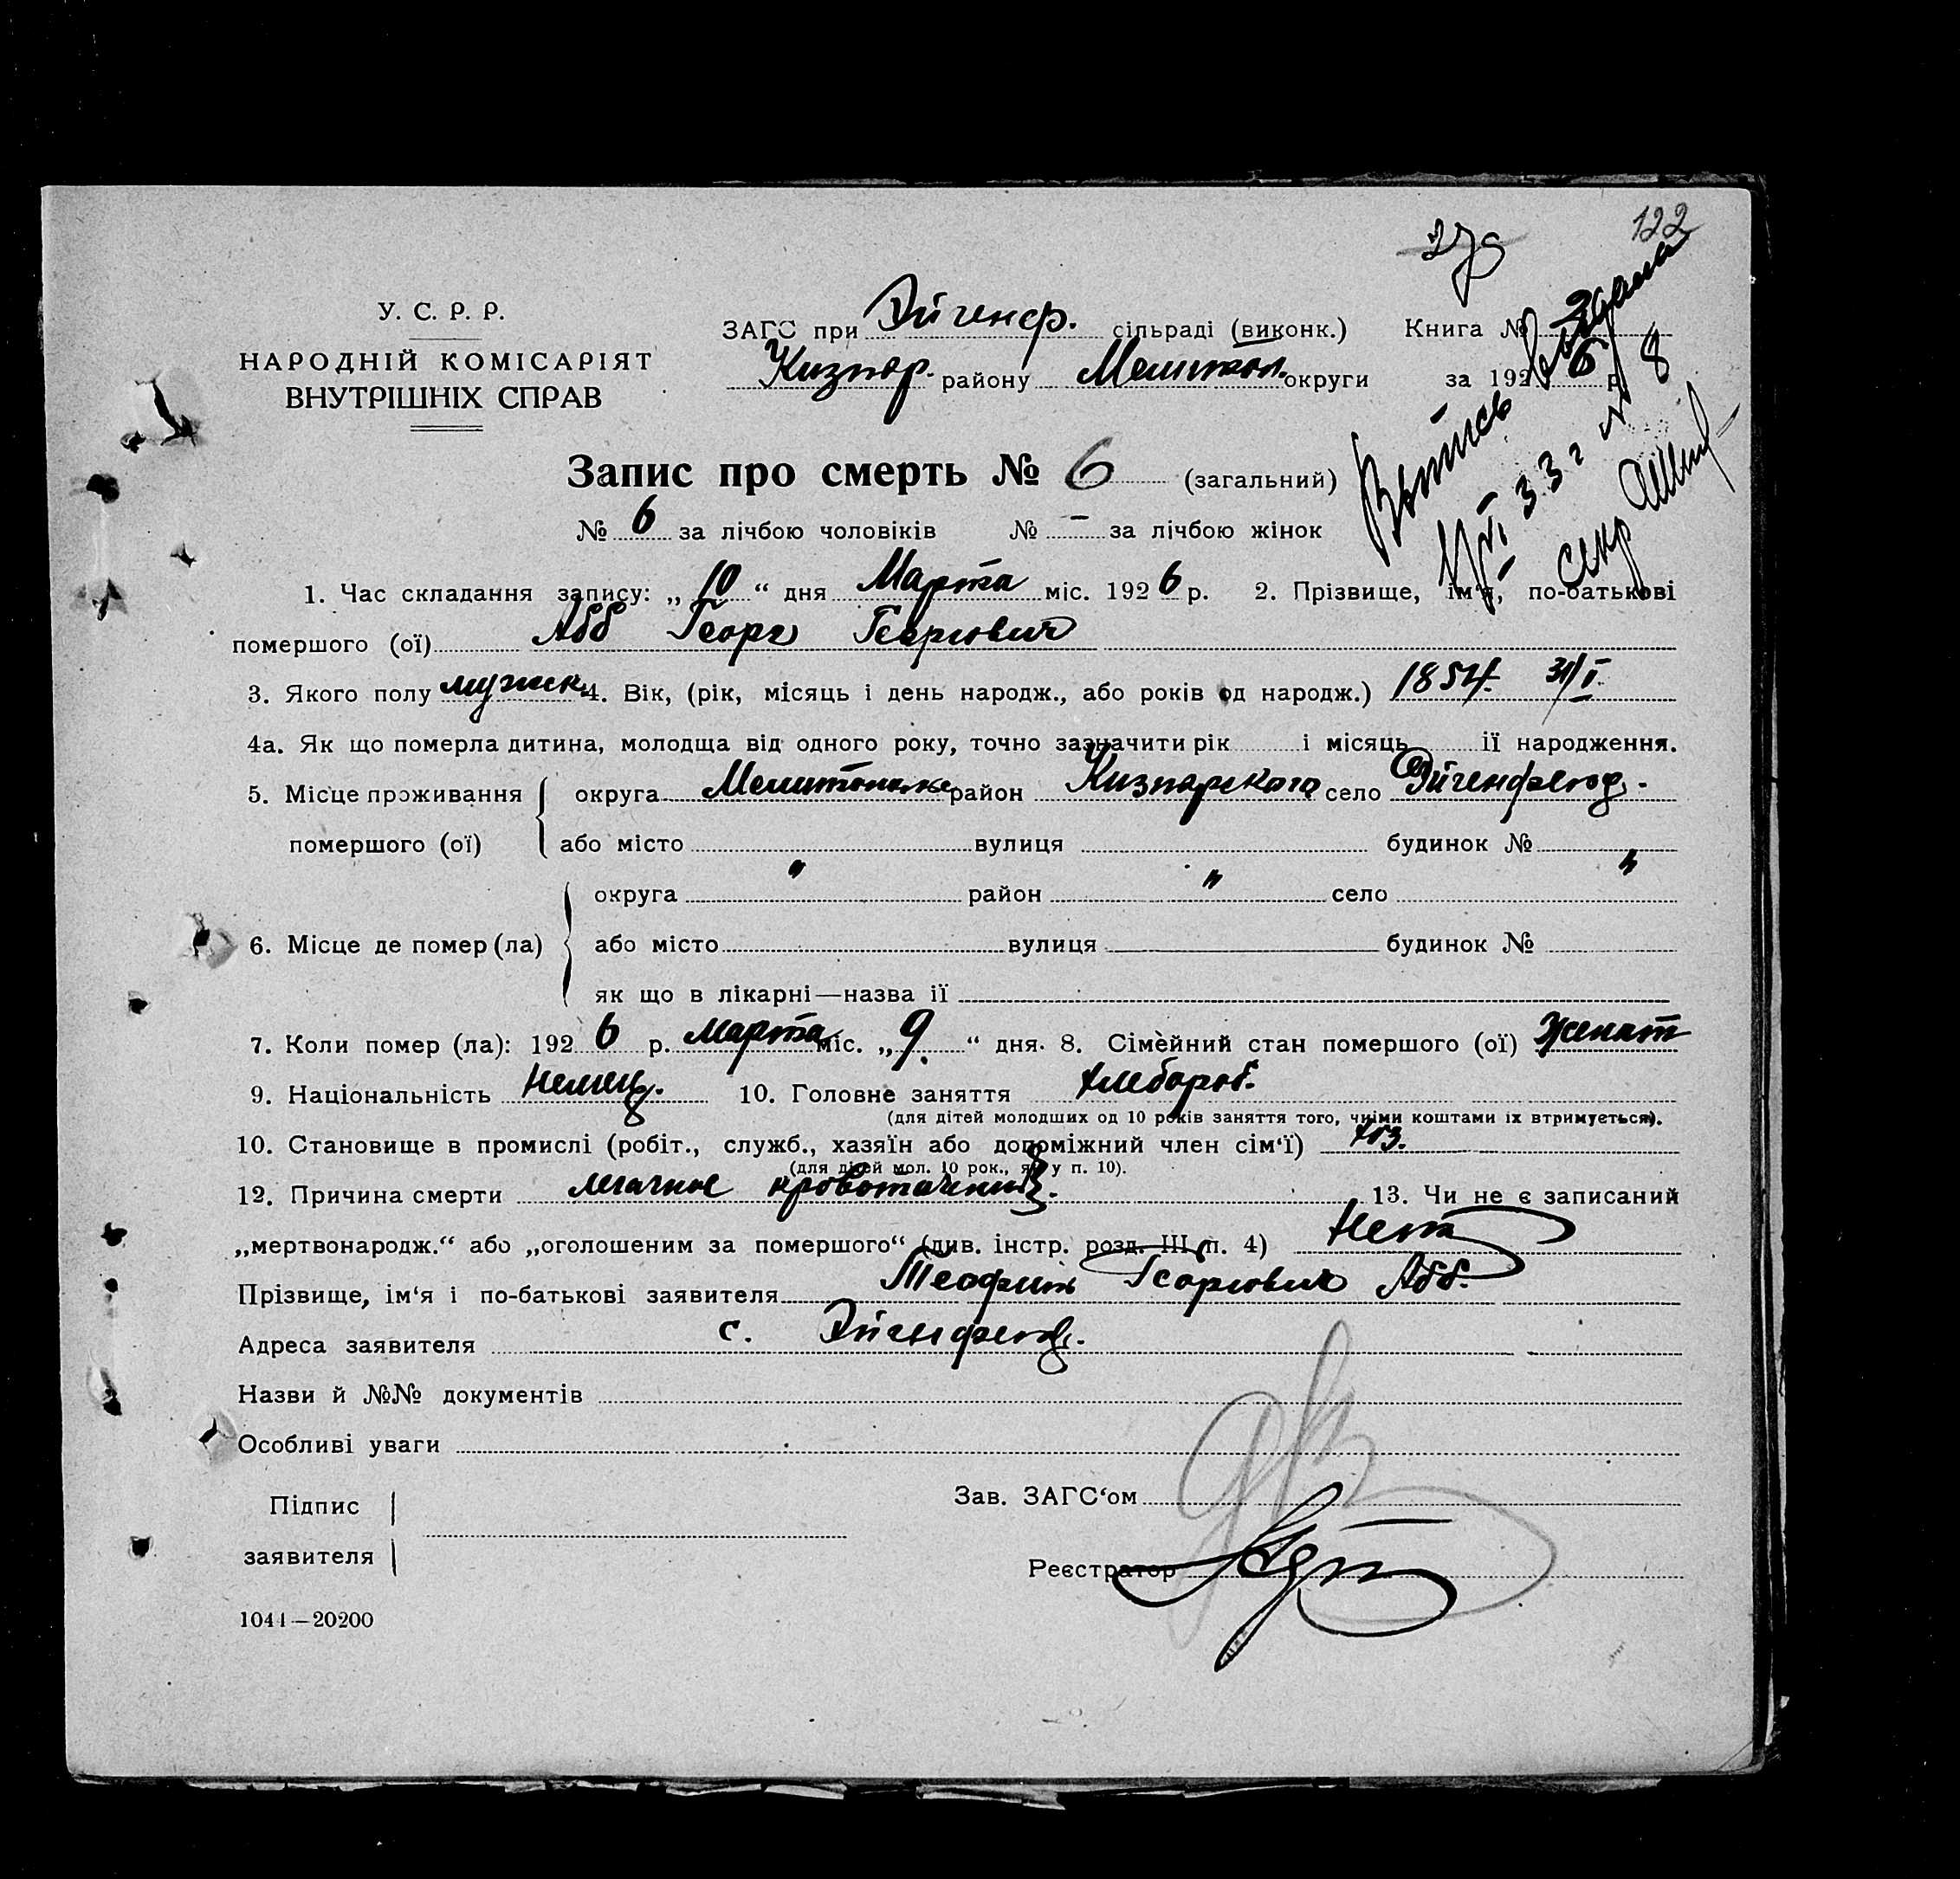 122
У. С. Р. Р.
НАРОДНІЙ КОМІСАРІЯТ
ВНУТРІШНІХ СПРАВ
ЗАГС при Эйгенф. сільраді (виконк.) Книга №
Кизияр. району Мелитоп. округи за 1926 р.
Выпись выдана
33 г № 8
секр
Запис про смерть № 6 (загальний)
№ 6 за лічбою чоловіків № – за лічбою жінок
1. Час складання запису: „10“ дня Марта міс. 1926 р. 2. Прізвище, ім'я, по-батькові
помершого (ої) Абб Георг Георгиевич
3. Якого полу мужск. 4. Вік, (рік, місяць і день народж., або років од народж.) 1854. 31/I.
4а. Як що померла дитина, молодща від одного року, точно зазначити рік і місяць ії народження.
5. Місце проживання помершого (ої) округа Мелитопольск район Кизиярского село Эйгенфельд.
або місто вулиця будинок №
6. Місце де помер (ла) округа " район " село "
або місто вулиця будинок №
як що в лікарні—назва ії
7. Коли помер (ла): 1926 р. марта міс. „9.“ дня. 8. Сімейний стан помершого (ої) Женат
9. Національність Немец. 10. Головне заняття хлебороб.
(для дітей молодших од 10 років заняття того, чиіми коштами іх втримується).
10. Становище в промислі (робіт., служб., хазяїн або допоміжний член сім'ї) хоз.
(для дітей мол. 10 рок., як у п. 10).
12. Причина смерти легочное кровотечение. 13. Чи не є записаний
„мертвонародж.“ або „оголошеним за помершого“ (див. інстр. розд. III, п. 4) Нет
Прізвище, ім'я і по-батькові заявителя Теофиль Георгиевич Абб.
Адреса заявителя с. Эйгенфельд.
Назви й №№ документів
Особливі уваги
Підпис заявителя
Зав. ЗАГС'ом
Реєстратор
1044—20200